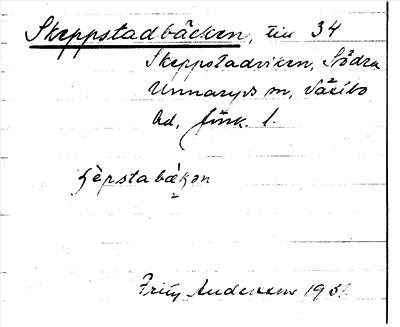 Skeppstadbäcken, till 34
Skeppstadviken, Södra
Unnaryds sn, Västbo
hd, Jönk. l.
šèpstabækən
Fritz Andersson 1931.